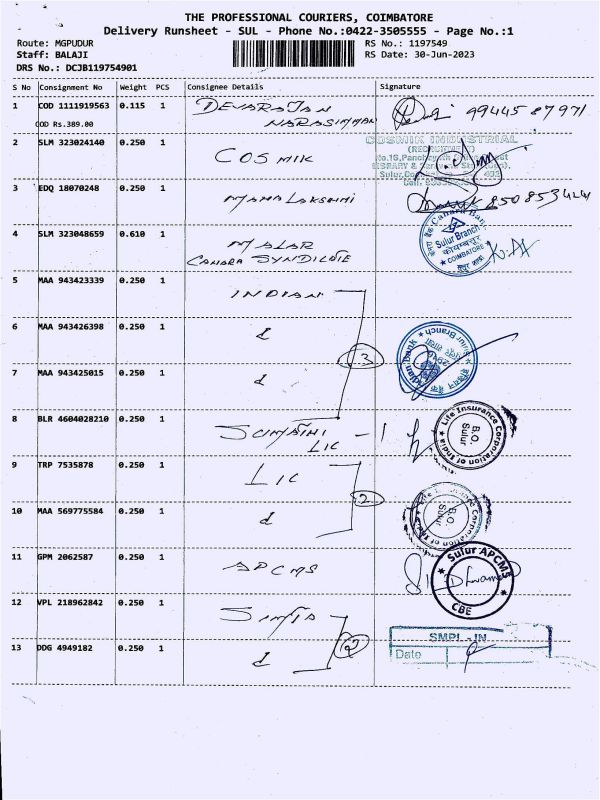 THE PROFESSIONAL COURIERS, COIMBATORE
Delivery Runsheet - SUL - Phone No.:0422-3505555 - Page No.:1
Route: MGPUDUR
RS No.: 1197549
Staff: BALAJI
RS Date: 30-Jun-2023
DRS No.: DCJB119754901
S No Consignment No Weight PCS Consignee Details Signature
1 COD 1111919563 0.115 1 DEVARAJAN 9944587971
COD Rs.389.00 NARASIMMAN
2 SLM 323024140 0.250 1 COSMIK
COSMIK INDUSTRIAL
3 EDQ 18070248 0.250 1 MAHALAKSHMI 850853424
4 SLM 323048659 0.610 1 MALAR
CANARA SYNDICATE
Canara Bank
Sulur Branch
COIMBATORE
5 MAA 943423339 0.250 1 INDIAN
6 MAA 943426398 0.250 1 d 3
Indian Bank Sulur Branch
7 MAA 943425015 0.250 1 d
8 BLR 4604028210 0.250 1 SUMATHI - 1
LIC
Life Insurance Corporation of India
B.O.
Sulur
9 TRP 7535878 0.250 1 LIC 2
10 MAA 569775584 0.250 1 d
Life Insurance Corporation of India
B.O.
Sulur
11 GPM 2062587 0.250 1 APCMS
Sulur APCMS
CBE
12 VPL 218962842 0.250 1 SIMTA 2
SMPL - IN
Date
13 DDG 4949182 0.250 1 d